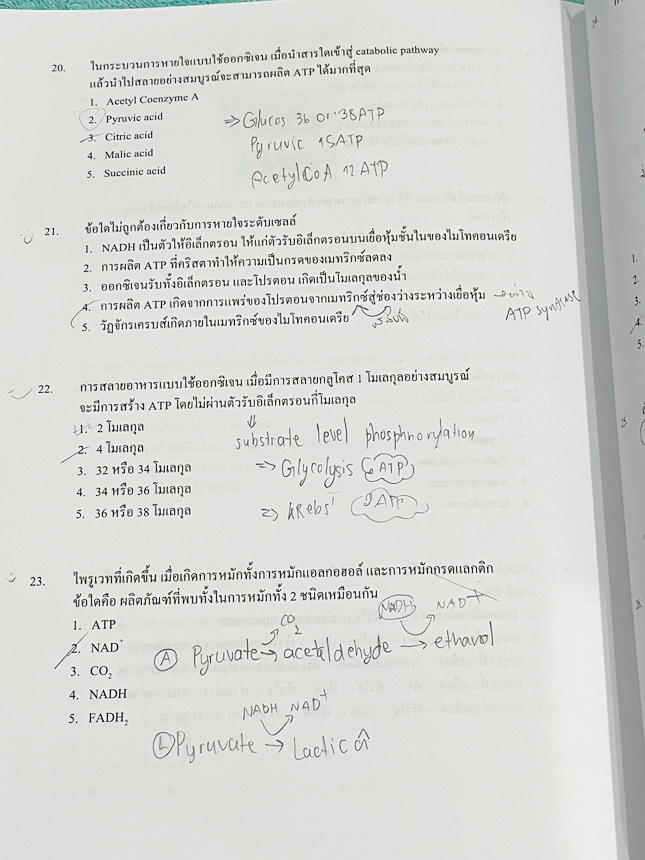 20. ในกระบวนการหายใจแบบใช้ออกซิเจน เมื่อนำสารใดเข้าสู่ catabolic pathway
แล้วนำไปสลายอย่างสมบูรณ์จะสามารถผลิต ATP ได้มากที่สุด
1. Acetyl Coenzyme A
2. Pyruvic acid
3. Citric acid
4. Malic acid
5. Succinic acid
⇒ Glucos 36 or 38 ATP
Pyruvic 15 ATP
Acetyl CoA 12 ATP
21. ข้อใดไม่ถูกต้องเกี่ยวกับการหายใจระดับเซลล์
1. NADH เป็นตัวให้อิเล็กตรอน ให้แก่ตัวรับอิเล็กตรอนบนเยื่อหุ้มชั้นในของไมโทคอนเดรีย
2. การผลิต ATP ที่คริสตาทำให้ความเป็นกรดของเมทริกซ์ลดลง
3. ออกซิเจนรับทั้งอิเล็กตรอน และโปรตอน เกิดเป็นโมเลกุลของน้ำ
4. การผลิต ATP เกิดจากการแพร่ของโปรตอนจากเมทริกซ์สู่ช่องว่างระหว่างเยื่อหุ้ม → ผ่าน
ATP synthase
5. วัฏจักรเครบส์เกิดภายในเมทริกซ์ของไมโทคอนเดรีย
22. การสลายอาหารแบบใช้ออกซิเจน เมื่อมีการสลายกลูโคส 1 โมเลกุลอย่างสมบูรณ์
จะมีการสร้าง ATP โดยไม่ผ่านตัวรับอิเล็กตรอนกี่โมเลกุล
1. 2 โมเลกุล
2. 4 โมเลกุล
3. 32 หรือ 34 โมเลกุล
4. 34 หรือ 36 โมเลกุล
5. 36 หรือ 38 โมเลกุล
substrate level phosphnorylation
⇒ Glycolysis 2 ATP
⇒ krebs' 2 ATP
23. ไพรูเวทที่เกิดขึ้น เมื่อเกิดการหมักทั้งการหมักแอลกอฮอล์ และการหมักกรดแลกติก
ข้อใดคือ ผลิตภัณฑ์ที่พบทั้งในการหมักทั้ง 2 ชนิดเหมือนกัน
1. ATP
2. NAD⁺
3. CO₂
4. NADH
5. FADH₂
CO₂ NADH NAD⁺
A Pyruvate → acetaldehyde → ethanol
NADH NAD⁺
L Pyruvate → Lactic